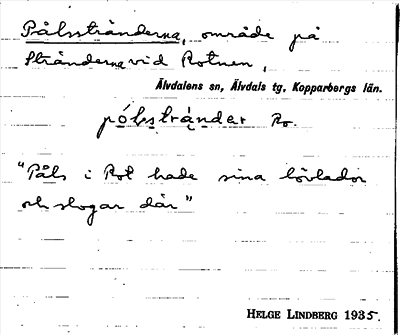 Pålsstränderna, område på
Stränderna vid Rotnen,
Älvdalens sn, Älvdals tg, Kopparbergs län.
pó̱lsstrą̀nder Ro.
"Påls i Rot hade sina lövlador
och slogar där"
HELGE LINDBERG 1935.